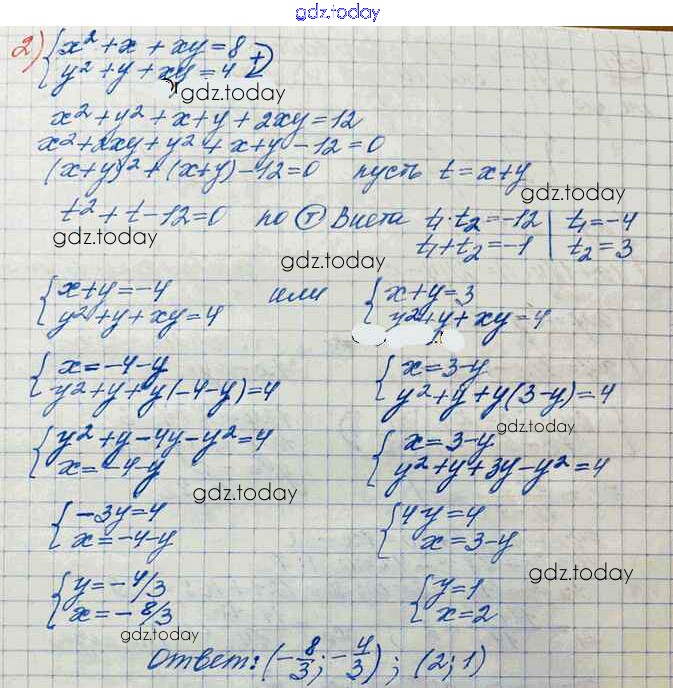 gdz.today
2) { x² + x + xy = 8
y² + y + xy = 4 (+)
gdz.today
x² + y² + x + y + 2xy = 12
x² + 2xy + y² + x + y - 12 = 0
(x+y)² + (x+y) - 12 = 0 пусть t = x+y
gdz.today
t² + t - 12 = 0 по (т) Виета t₁·t₂ = -12 | t₁ = -4
t₁ + t₂ = -1 | t₂ = 3
gdz.today
gdz.today
{ x + y = -4 или { x + y = 3
y² + y + xy = 4 y² + y + xy = 4
{ x = -4 - y { x = 3 - y
y² + y + y(-4 - y) = 4 y² + y + y(3 - y) = 4
gdz.today
{ y² + y - 4y - y² = 4 { x = 3 - y
x = -4 - y y² + y + 3y - y² = 4
gdz.today
{ -3y = 4 { 4y = 4
x = -4 - y x = 3 - y
gdz.today
{ y = -4/3 { y = 1
x = -8/3 x = 2
gdz.today
Ответ: (-8/3; -4/3); (2; 1)